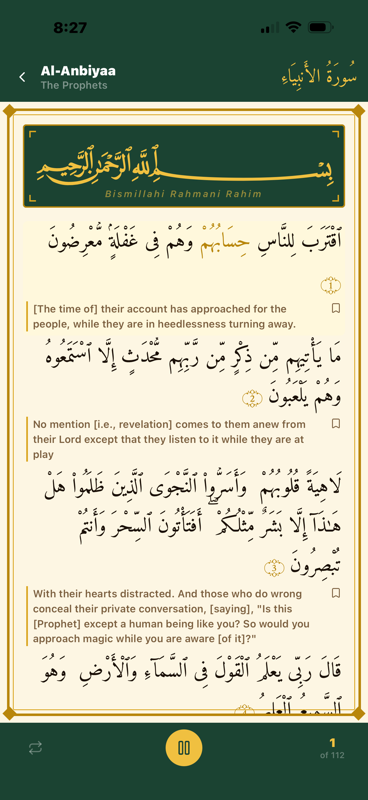 8:27
Al-Anbiyaa
سُورَةُ الأَنبِيَاءِ
The Prophets
بِسْمِ اللَّهِ الرَّحْمَٰنِ الرَّحِيمِ
Bismillahi Rahmani Rahim
ٱقْتَرَبَ لِلنَّاسِ حِسَابُهُمْ وَهُمْ فِى غَفْلَةٍۢ مُّعْرِضُونَ
1
[The time of] their account has approached for the
people, while they are in heedlessness turning away.
مَا يَأْتِيهِم مِّن ذِكْرٍۢ مِّن رَّبِّهِم مُّحْدَثٍ إِلَّا ٱسْتَمَعُوهُ
وَهُمْ يَلْعَبُونَ 2
No mention [i.e., revelation] comes to them anew from
their Lord except that they listen to it while they are at
play
لَاهِيَةًۭ قُلُوبُهُمْ ۗ وَأَسَرُّوا۟ ٱلنَّجْوَى ٱلَّذِينَ ظَلَمُوا۟ هَلْ
هَـٰذَآ إِلَّا بَشَرٌۭ مِّثْلُكُمْ ۖ أَفَتَأْتُونَ ٱلسِّحْرَ وَأَنتُمْ
تُبْصِرُونَ 3
With their hearts distracted. And those who do wrong
conceal their private conversation, [saying], "Is this
[Prophet] except a human being like you? So would you
approach magic while you are aware [of it]?"
قَالَ رَبِّى يَعْلَمُ ٱلْقَوْلَ فِى ٱلسَّمَآءِ وَٱلْأَرْضِ ۖ وَهُوَ
ٱلسَّمِيعُ ٱلْعَلِيمُ 4
1
of 112